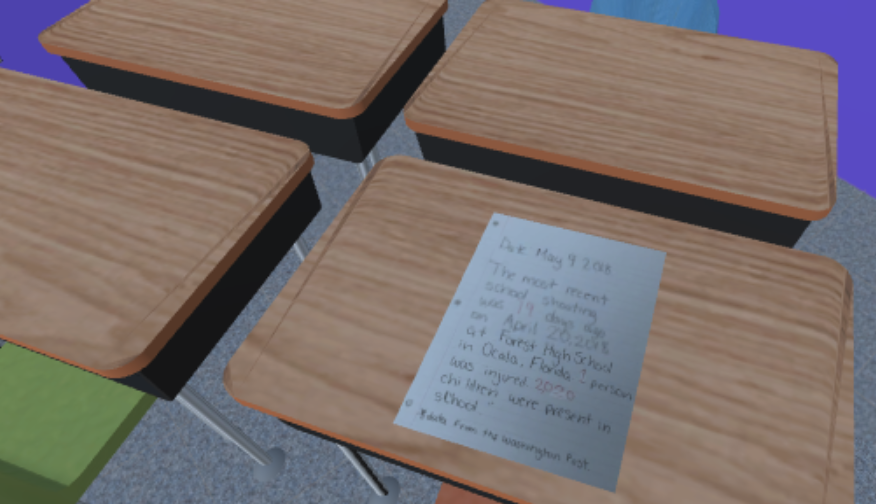 Date May 9 2018
The most recent
school shooting
was 19 days ago
on April 20, 2018
at Forest High School
in Ocala, Florida 1 person
was injured. 2020
children were present in
school.
*data from the Washington Post.